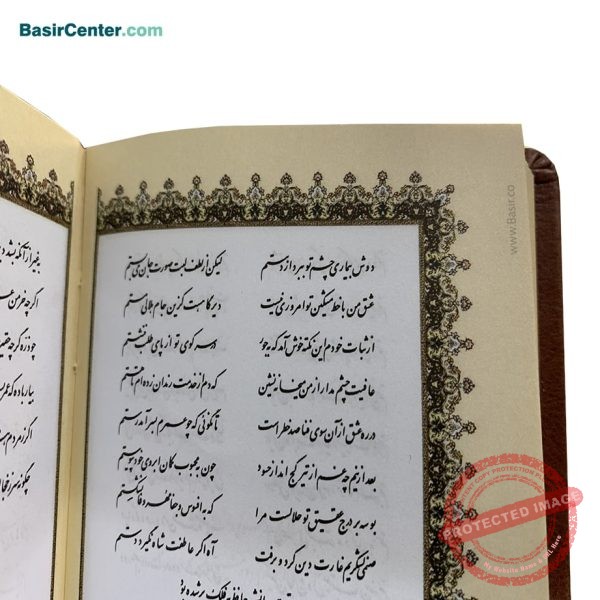 BasirCenter.com
www.Basir.co
دوش بیماری چشم تو ببرد از دستم لیکن از لطف لبت صورت جان می بستم
عشق من با خط مشکین تو امروزی نیست دیرگاهست کزین جام هلالی مستم
از ثبات خودم این نکته خوش آمد که بجور در سر کوی تو از پای طلب ننشستم
عافیت چشم مدار از من میخانه نشین که دم از خدمت رندان زده ام تا هستم
در ره عشق از آن سوی فنا صد خطر است تا نگوئی که چو عمرم بسر آمد رستم
بعد از اینم چه غم از تیر کج انداز حسود چون به محبوب کمان ابروی خود پیوستم
بوسه بر درج عقیق تو حلالست مرا که به افسوس و جفا مهر وفا نشکستم
صنمی لشکریم غارت دین کرد و برفت آه اگر عاطفت شاه نگیرد دستم
دانش حافظ به فلک بر شده بود
بغیر از آنکه بشد
اگر چه خرمن
چو ذره گر چه
بیار باده که
اگر ز مردم
چگونه سر ز
PROTECTED IMAGE